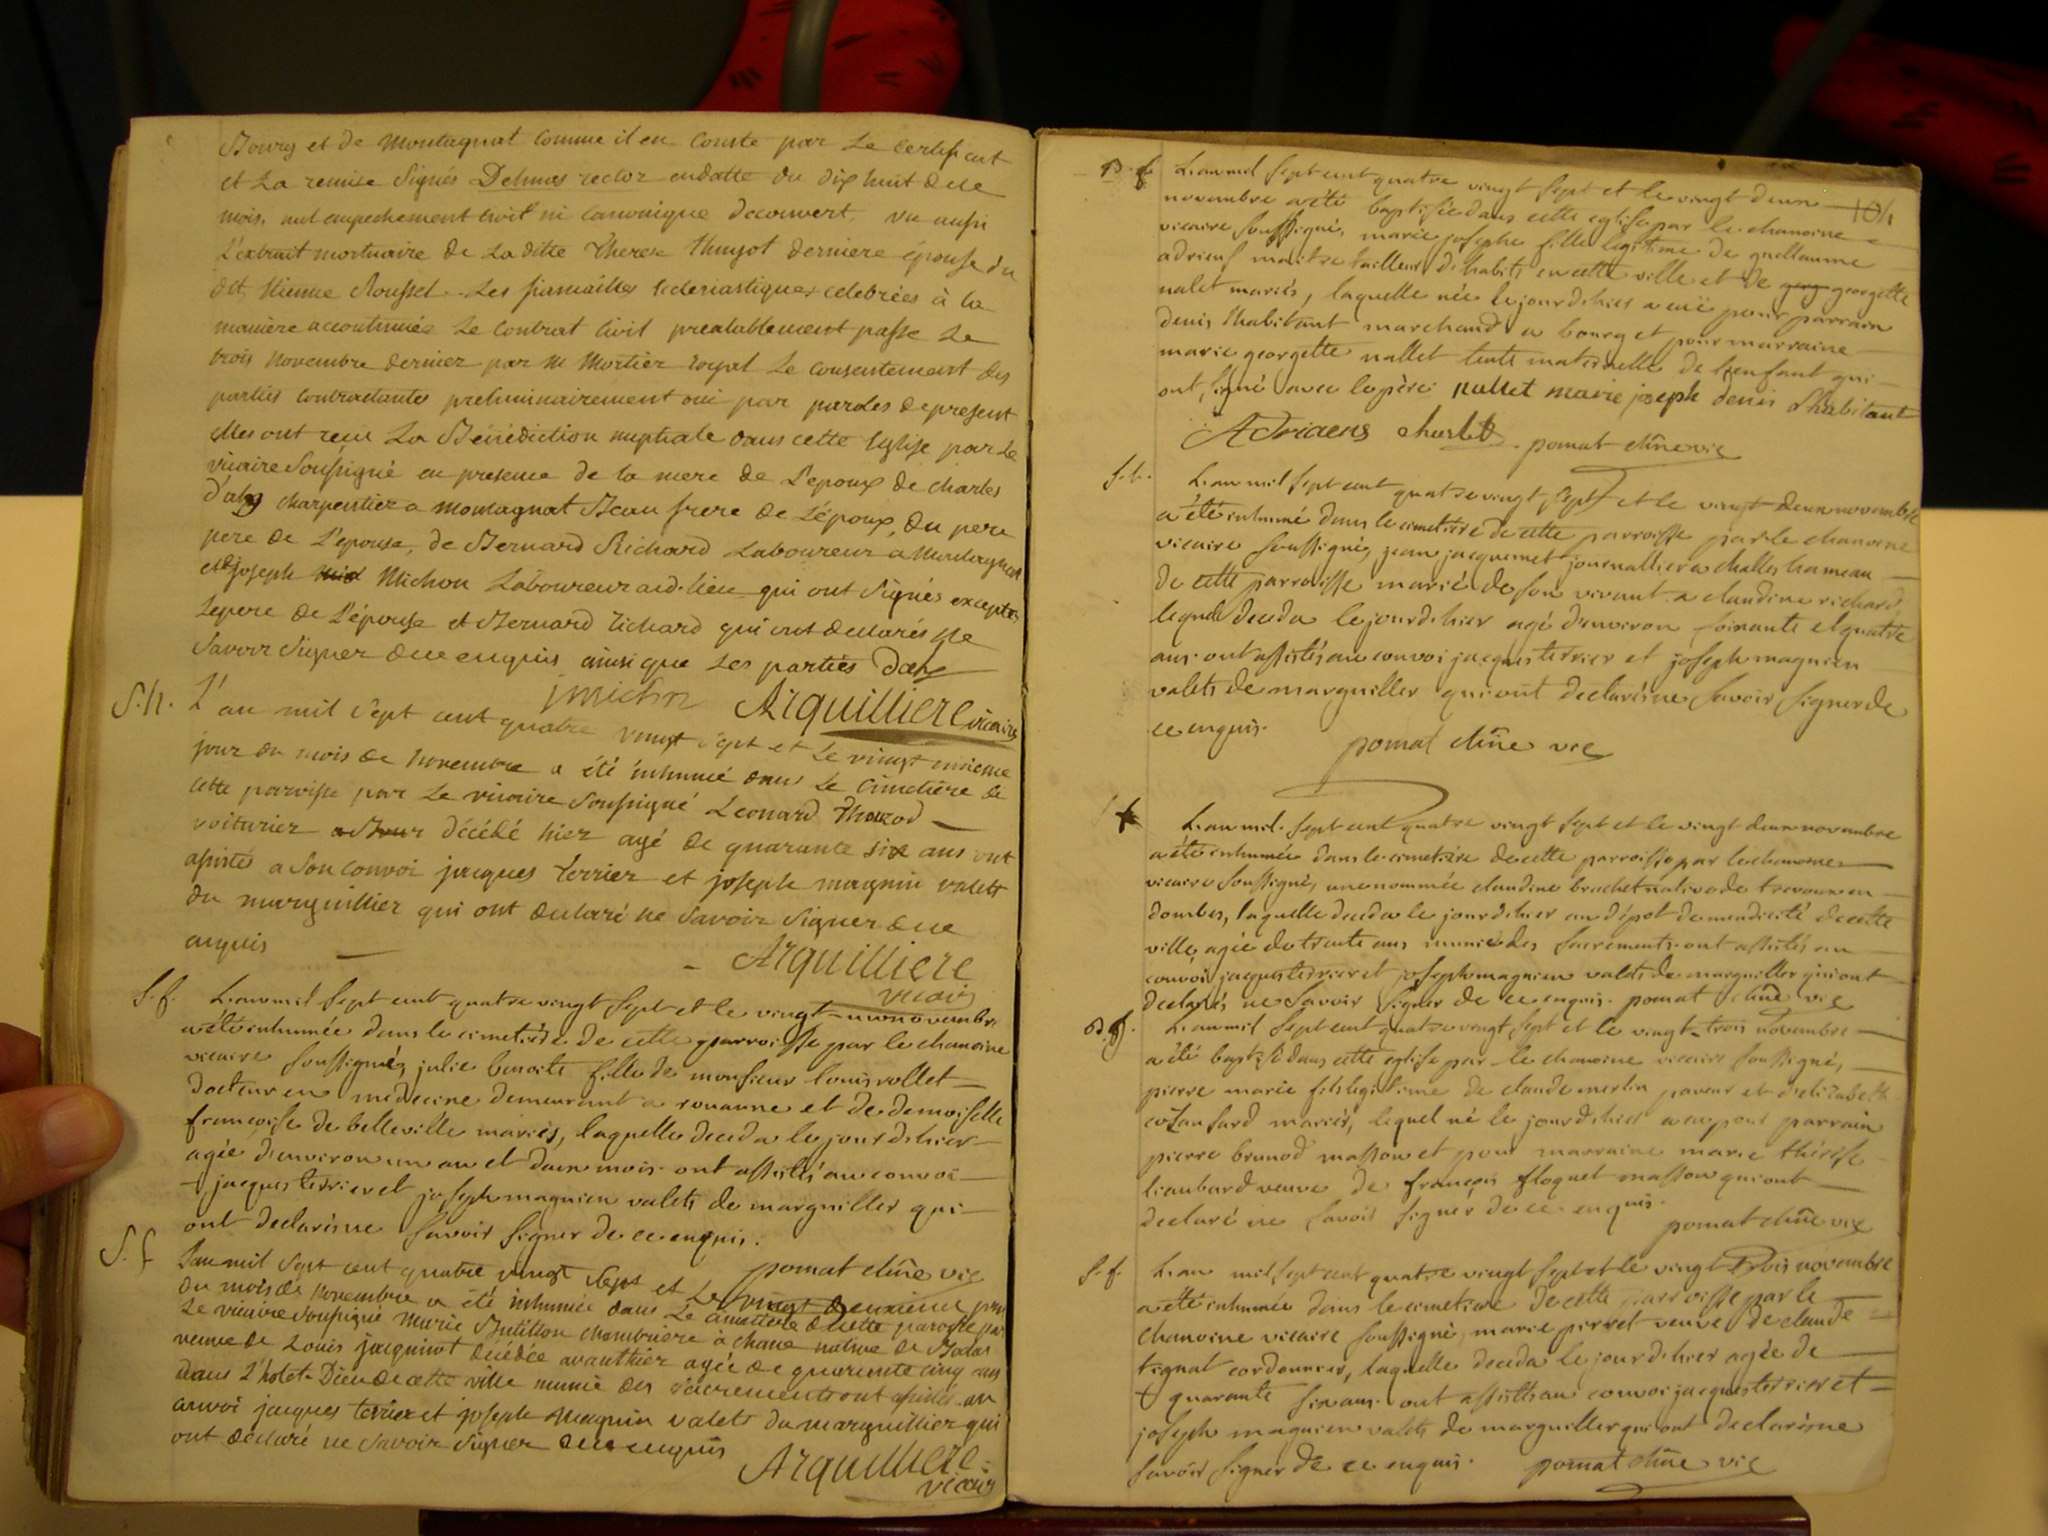 Bourg et de Montagnat comme il en conste par Le certificat
et La remise signés Delmas rector endatte du dix huit dece
mois. nul empechement civil ni canonique decouvert, vu aussi
L'extrait mortuaire de La ditte Therese Thuyot derniere épouse du
dit, Etienne Roussel. Les fiancailles Eclesiastiques celebrées à la
maniere accoutumée Le Contrat Civil prealablement passé Le
trois Novembre dernier par Me Mortier royal Le Consentement des
parties Contractantes preliminairement oui par paroles depresent
elles ont reçu La Bénédiction nuptiale dans cette Eglise par Le
vicaire Soussigné en presence de la mere de L'epoux de charles
charpentier a Montagnat Beau frere de L'époux, du pere
pere de L'epouse, de Bernard Richard Laboureur a Montagnat
et joseph Michon Laboureur aud. lieu qui ont Signés exceptés
Lepere de L'épouse et Bernard Richard qui ont declarés ne
Savoir Signer dece enquis ainsi que Les parties
jmichon Arquilliere vicaire
S.h. L'an mil Sept cent quatre vingt sept et Le vingt unieme
jour du mois de Novembre a été inhumé dans Le Cimetière de
cette paroisse par Le vicaire Soussigné Leonard Thozod
voiturier a Bour décédé hier agé de quarante six ans ont
assistés a Son Convoi jacques terrier et joseph magnin valets
du marguillier qui ont declaré ne Savoir Signer dece
enquis
Arquilliere
vicaire
S.f. L'an mil Sept cent quatre vingt sept et le vingt-un novembre
a été inhumée dans le cimetière de cette parroisse par le chanoine
vicaire soussigné, julie benoite fille de monsieur louis rollet
docteur en médecine demeurant a rouanne et de demoiselle
françoise de belleville mariés, laquelle deceda le jour dhier
agée d'environ un an et deux mois. ont assistés au convoi
jacques terrier et joseph magnien valets de marguiller qui
ont declarés ne savoir signer de ce enquis.
pomat chne vic
S.f L'an mil sept cent quatre vingt sept et Le vingt deuxieme jour
du mois de Novembre a été inhumée dans Le cimetiere de cette paroisse par
Le vicaire Soussigné Marie Butillon chambriere à chane native de
veuve de Louis jacquinot décédée avanthier agée de quarente cinq ans
dans L'hotel-Dieu de cette ville munie des Sacrements ont assistés au
convoi jacques terrier et joseph Magnin valets du marguillier qui
ont declaré ne Savoir Signer dece enquis
Arquilliere
vicaire
104
B.f. L'an mil sept cent quatre vingt sept et le vingt deux
novembre a été baptisée dans cette eglise par le chanoine
vicaire soussigné, marie josephe fille legitime de guillaume
adriens maitre tailleur d'habits en cette ville et de georgette
nalet mariés, laquelle née le jour d'hier a eue pour parrain
denis lhabitant marchand a bourg et pour marraine
marie georgette nallet tante maternelle de l'enfant qui
ont signé avec le père. nallet marie joseph denis lhabitant
Adriaens pomat chne vic
S.h. L'an mil sept cent quatre vingt sept et le vingt deux novembre
a été inhumé dans le cimetière de cette parroisse par le chanoine
vicaire soussigné, jean jacquemet journallier a challes hameau
de cette parroisse marié de son vivant a claudine richard
lequel deceda le jour d'hier agé d'environ soixante et quatre
ans. ont assistés au convoi jacques terrier et joseph magnien
valets de marguiller qui ont declarés ne savoir signer de
ce enquis.
pomat chne vic
L'an mil sept cent quatre vingt sept et le vingt deux novembre
a été inhumée dans le cimetière de cette parroisse par le chanoine
vicaire soussigné, une nommée claudine brachet native de trevoux en
dombes, laquelle deceda le jour d'hier au dépot de mendicité de cette
ville agée de trente ans munie des sacrements. ont assistés au
convoi jacques terrier et joseph magnien valets de marguiller qui ont
declarés ne savoir signer de ce enquis. pomat chne vic
B.g. L'an mil sept cent quatre vingt sept et le vingt-trois novembre
a été baptisé dans cette eglise par le chanoine vicaire soussigné,
pierre marie fils legitime de claude merlin paveur et d'elizabeth
mariés, lequel né le jour d'hier a eu pour parrain
pierre brunod masson et pour marraine marie thérèse
lieubard veuve de françois floquet masson qui ont
declaré ne savoir signer de ce enquis.
pomat chne vic
S.f. L'an mil sept cent quatre vingt sept et le vingt trois novembre
a été inhumée dans le cimetiere de cette parroisse par le
chanoine vicaire soussigné, marie pierret veuve de claude
tignat cordonnier, laquelle deceda le jour d'hier agée de
quarante six ans. ont assistés au convoi jacques terrier et
joseph magnien valets de marguiller qui ont declarés ne
savoir signer de ce enquis. pomat chne vic